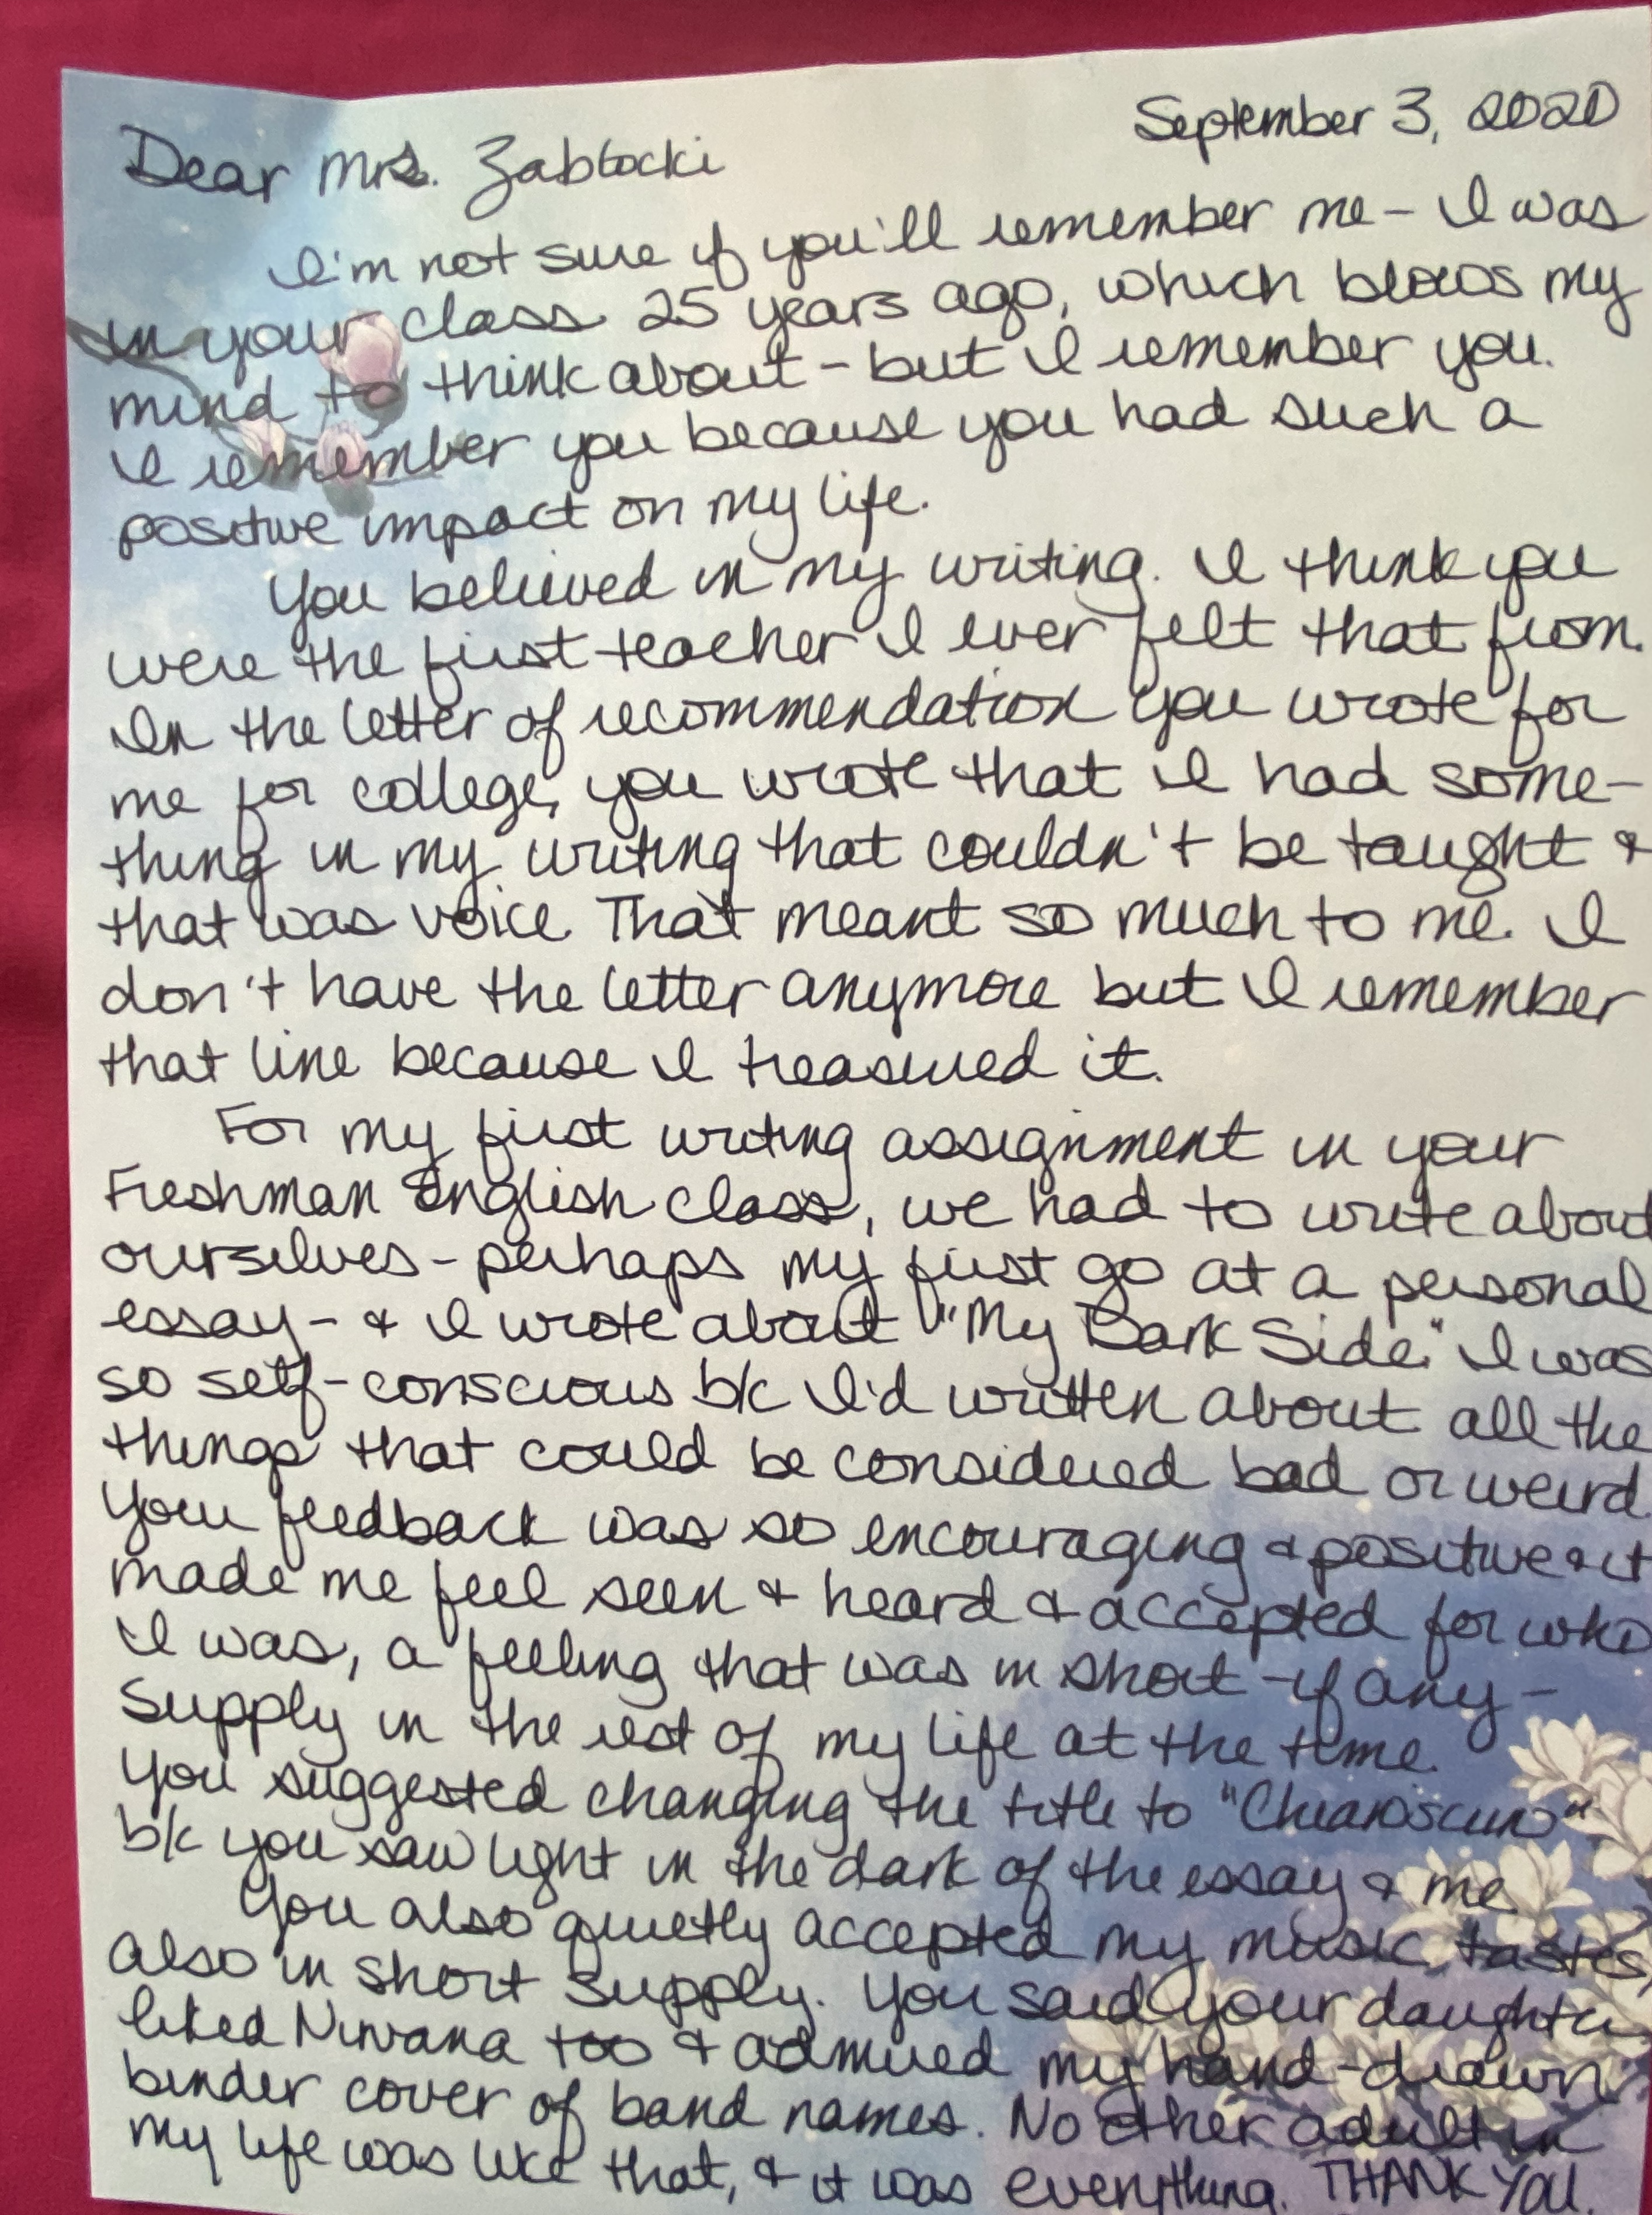 September 3, 2020
Dear Mrs. Zablocki
I'm not sure if you'll remember me - I was
in your class 25 years ago, which blows my
mind to think about - but I remember you.
I remember you because you had such a
positive impact on my life.
You believed in my writing. I think you
were the first teacher I ever felt that from.
In the letter of recommendation you wrote for
me for college, you wrote that I had some-
thing in my writing that couldn't be taught &
that was voice. That meant so much to me. I
don't have the letter anymore but I remember
that line because I treasured it.
For my first writing assignment in your
Freshman English class, we had to write about
ourselves - perhaps my first go at a personal
essay - & I wrote about "My Dark Side." I was
so self-conscious b/c I'd written about all the
things that could be considered bad or weird.
Your feedback was so encouraging & positive & it
made me feel seen & heard & accepted for who
I was, a feeling that was in short - if any -
supply in the rest of my life at the time.
You suggested changing the title to "Chiaroscuro"
b/c you saw light in the dark of the essay & me
You also quietly accepted my music tastes,
also in short supply. You said your daughter
liked Nirvana too & admired my hand-drawn
binder cover of band names. No other adult in
my life was like that, & it was everything. THANK YOU.